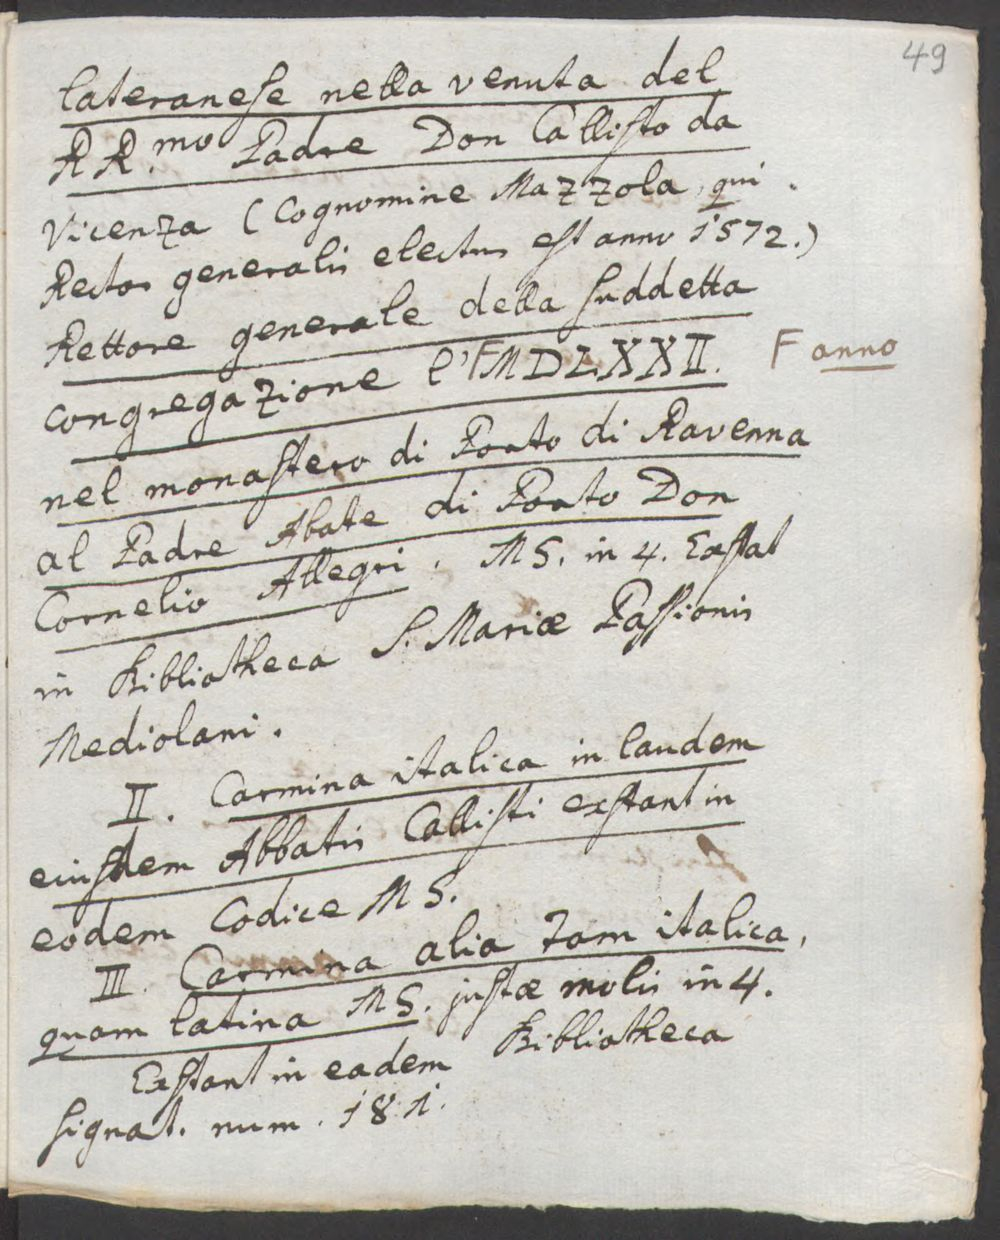 49
lateranese nella venuta del
RR.mo Padre Don Callisto da
Vicenza (cognomine Mazzola, qui
Rector generalis electus est anno 1572.)
Rettore generale della suddetta
congregazione l'F MDLXXII. F anno
nel monastero di Porto di Ravenna
al Padre Abate di Porto Don
Cornelio Allegri. MS. in 4. Exstat
in Bibliotheca S. Mariæ Passionis
Mediolani.
II. Carmina italica in laudem
eiusdem Abbatis Callisti exstant in
eodem Codice MS.
III. Carmina alia tam italica,
quam latina MS. justæ molis in 4.
Exstant in eadem Bibliotheca
signat. num. 181.